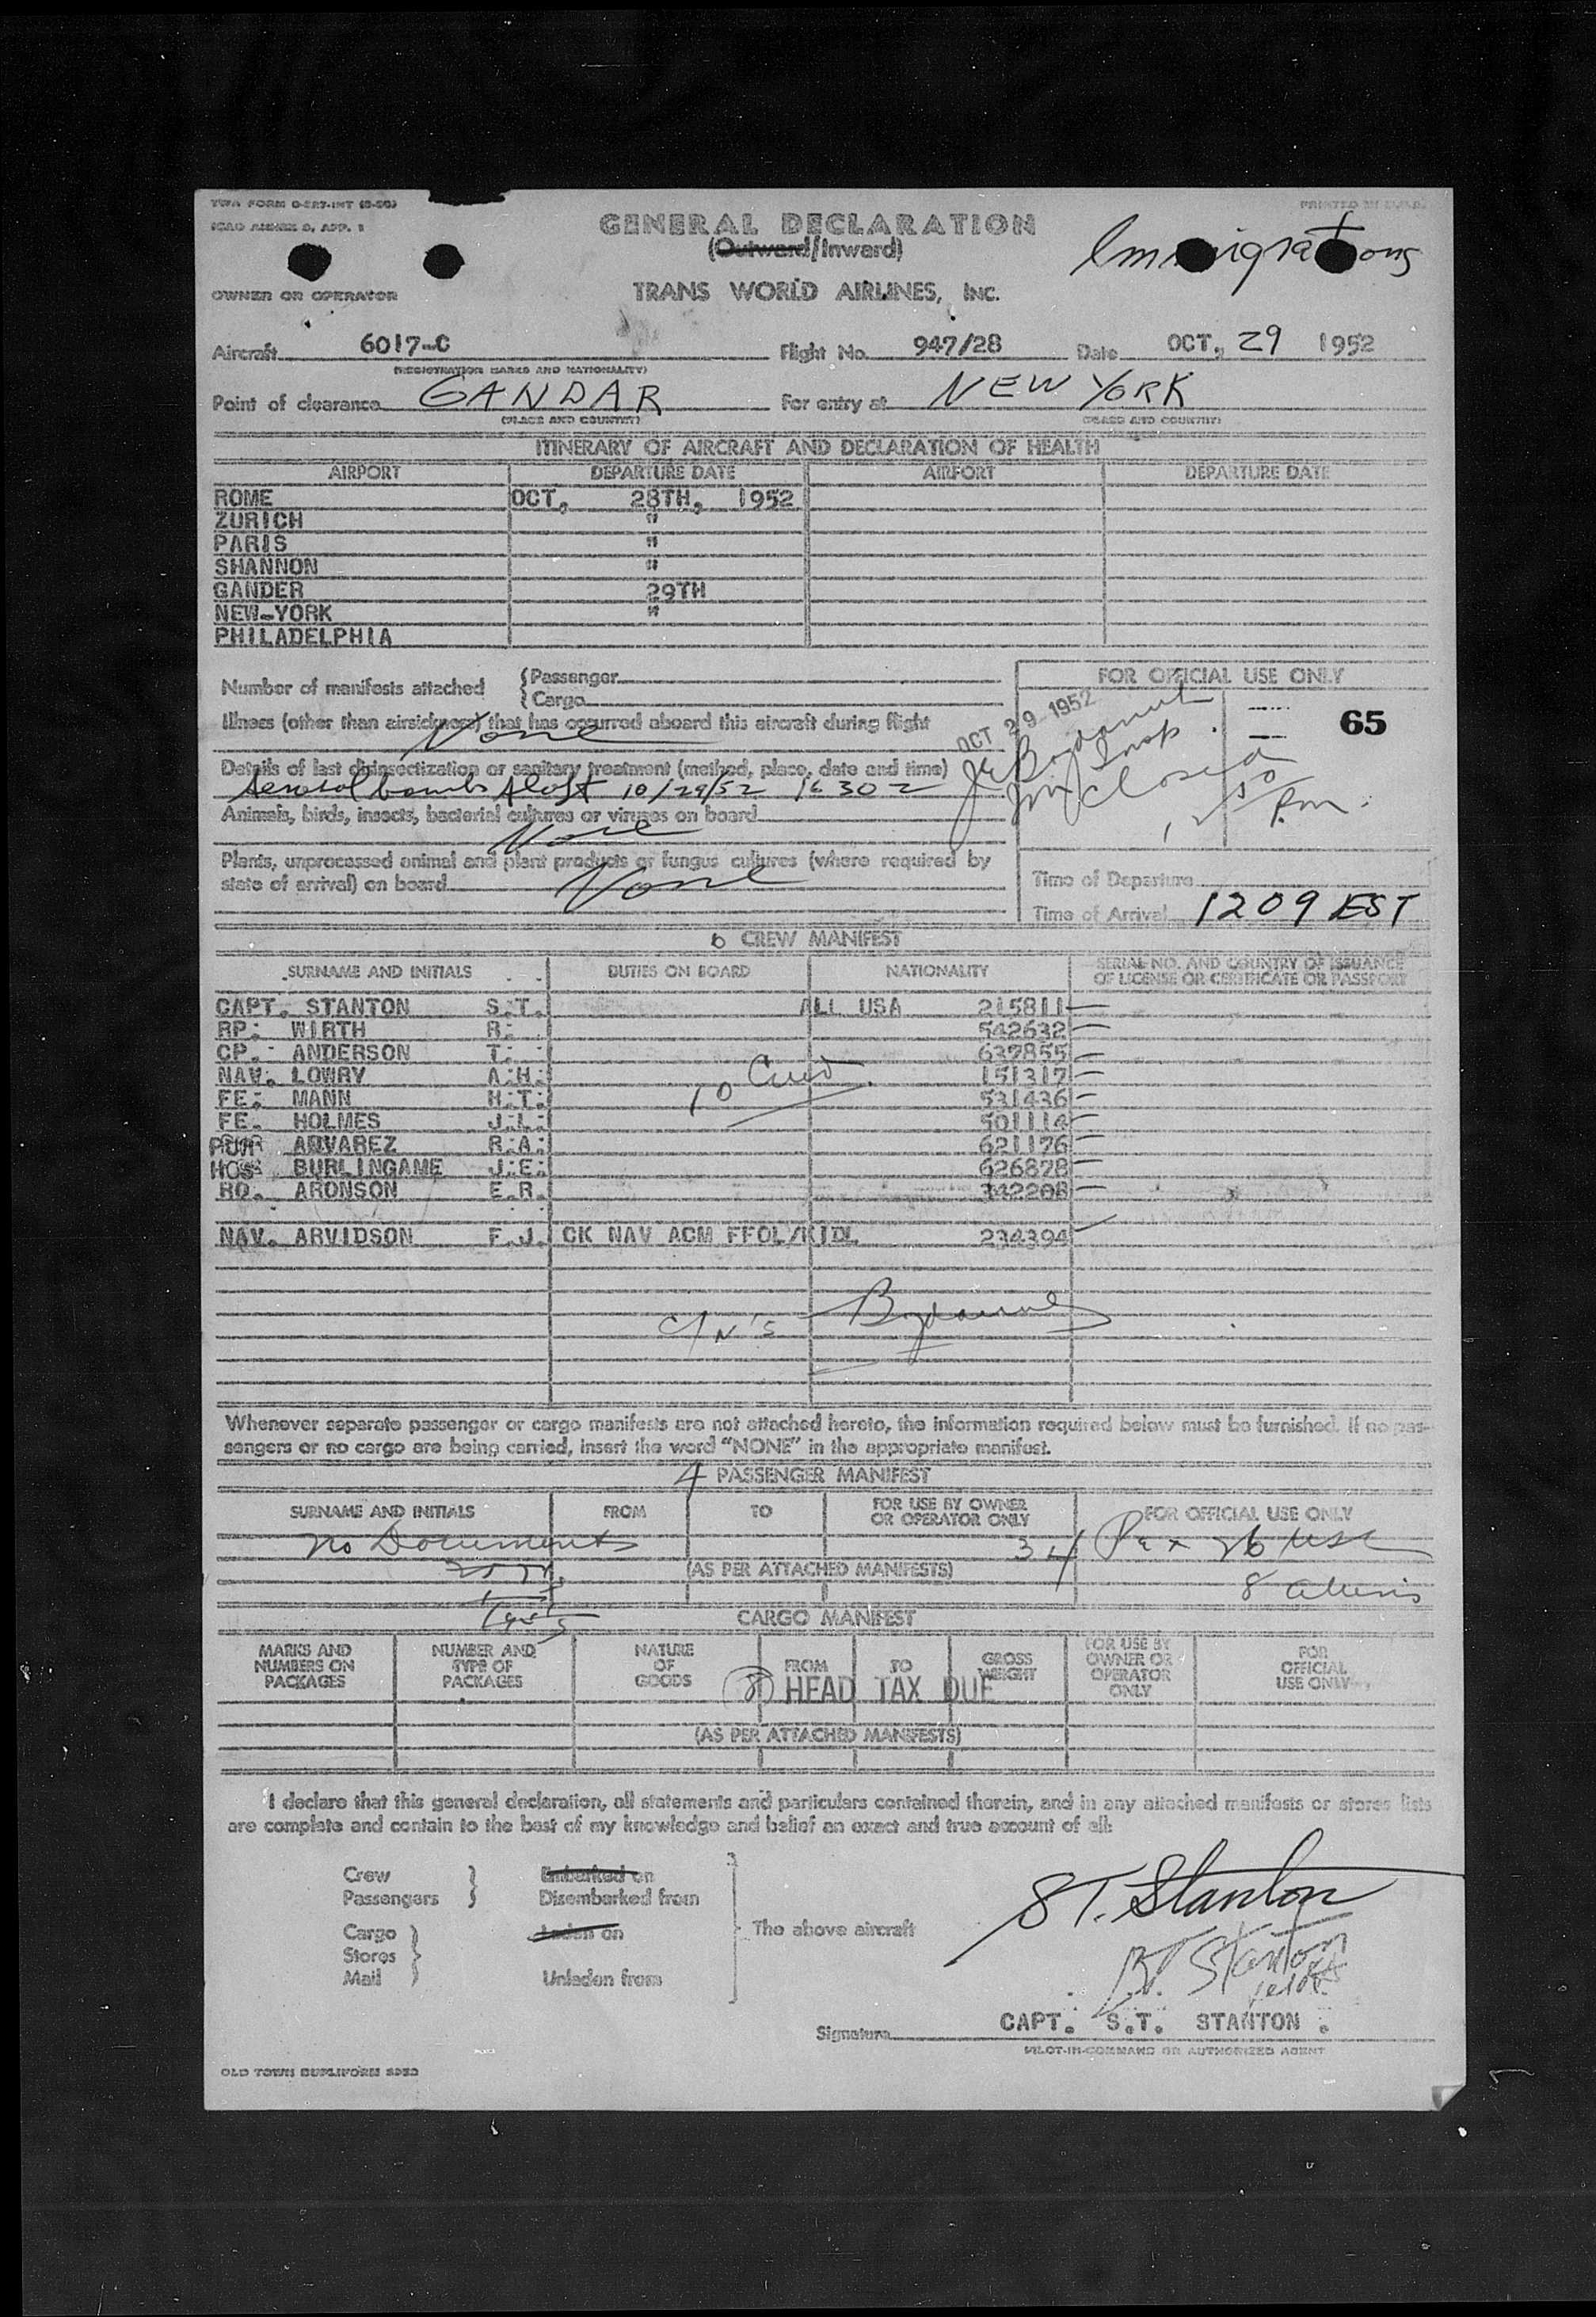 TWA FORM
ICAO ANNEX 9, APP. 1
PRINTED IN U.S.A.
GENERAL DECLARATION
(Outward/Inward)
Immigrations
OWNER OR OPERATOR
TRANS WORLD AIRLINES, INC.
Aircraft 6017-C Flight No. 947/28 Date OCT, 29 1952
(REGISTRATION MARKS AND NATIONALITY)
Point of clearance GANDAR For entry at NEW YORK
(PLACE AND COUNTRY) (PLACE AND COUNTRY)
ITINERARY OF AIRCRAFT AND DECLARATION OF HEALTH
AIRPORT DEPARTURE DATE AIRPORT DEPARTURE DATE
ROME OCT, 28TH, 1952
ZURICH "
PARIS "
SHANNON "
GANDER 29TH
NEW-YORK "
PHILADELPHIA
Number of manifests attached {Passenger
{Cargo
FOR OFFICIAL USE ONLY
OCT 29 1952
65
Illness (other than airsickness) that has occurred aboard this aircraft during flight
None
Details of last disinsectization or sanitary treatment (method, place, date and time)
Aerosol bombs Aloft 10/29/52 1630Z
closed
1250
P.m.
Animals, birds, insects, bacterial cultures or viruses on board
None
Plants, unprocessed animal and plant products or fungus cultures (where required by
state of arrival) on board None
Time of Departure
Time of Arrival 1209 EST
6 CREW MANIFEST
SURNAME AND INITIALS DUTIES ON BOARD NATIONALITY SERIAL NO. AND COUNTRY OF ISSUANCE
OF LICENSE OR CERTIFICATE OR PASSPORT
CAPT. STANTON S.T. ALL USA 215811
RP. WIRTH R. 542632
CP. ANDERSON T. 637855
NAV. LOWRY A.H. 151317
FE. MANN H.T. 531436
FE. HOLMES J.L. 501114
PUR ADVAREZ R.A. 621176
HOS BURLINGAME J.E. 626878
RO. ARONSON E.R. 342208
10 Crew
NAV. ARVIDSON F.J. CK NAV ACM FFOL/KIDL 234394
C/N's
Whenever separate passenger or cargo manifests are not attached hereto, the information required below must be furnished. If no pas-
sengers or no cargo are being carried, insert the word "NONE" in the appropriate manifest.
4 PASSENGER MANIFEST
SURNAME AND INITIALS FROM TO FOR USE BY OWNER
OR OPERATOR ONLY FOR OFFICIAL USE ONLY
No Documents 34 Pax 26 USC
(AS PER ATTACHED MANIFESTS)
8 aliens
CARGO MANIFEST
MARKS AND
NUMBERS ON
PACKAGES NUMBER AND
TYPE OF
PACKAGES NATURE
OF
GOODS FROM TO GROSS
WEIGHT FOR USE BY
OWNER OR
OPERATOR
ONLY FOR
OFFICIAL
USE ONLY
(8) HEAD TAX DUE
(AS PER ATTACHED MANIFESTS)
I declare that this general declaration, all statements and particulars contained therein, and in any attached manifests or stores lists
are complete and contain to the best of my knowledge and belief an exact and true account of all:
Crew } Embarked on
Passengers } Disembarked from
Cargo } Laden on
Stores }
Mail } Unladen from
The above aircraft
S T. Stanton
Stanton
Signature CAPT. S.T. STANTON.
PILOT-IN-COMMAND OR AUTHORIZED AGENT
OLD TOWN DUPLIFORM